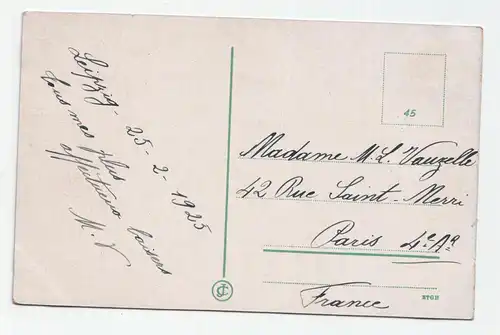 Leipzig - 25-2-1925
tous mes plus
affectueux baisers
M. V
45
Madame M. L. Vauzelle
42 Rue Saint-Merri
Paris 4e Ar
France